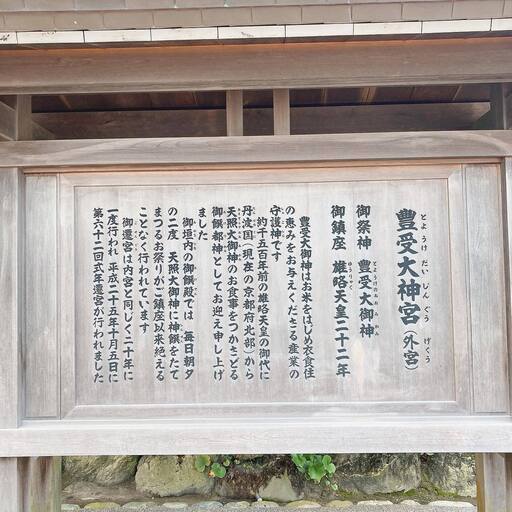 豊受大神宮（外宮）
とようけだいじんぐう　げくう
御祭神　豊受大御神
とようけのおおみかみ
御鎮座　雄略天皇二十二年
豊受大御神はお米をはじめ衣食住
の恵みをお与えくださる産業の
守護神です
約千五百年前の雄略天皇の御代に
丹波国（現在の京都府北部）から
天照大御神のお食事をつかさどる
御饌都神としてお迎え申し上げ
ました
御垣内の御饌殿では　毎日朝夕
の二度　天照大御神に神饌をたて
まつるお祭りがご鎮座以来絶える
ことなく行われています
御遷宮は内宮と同じく二十年に
一度行われ　平成二十五年十月五日に
第六十二回式年遷宮が行われました